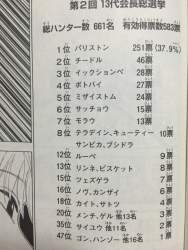 第2回 13代会長総選挙
総ハンター数 661名 有効得票数583票
1位 パリストン 251票(37.9%)
2位 チードル 46票
3位 イックションペ 28票
4位 ボトバイ 27票
5位 ミザイストム 24票
6位 サッチョウ 15票
7位 モラウ 13票
8位 テラデイン、キューティー 10票
サンビカ、ブシドラ
12位 ルーペ 9票
13位 リンネ、ビスケット 8票
15位 ツェズゲラ 7票
16位 ノヴ、カンザイ 6票
18位 カイト、サトツ 4票
20位 メンチ、ゲル 他13名 3票
35位 サイユウ 他11名 2票
47位 ゴン、ハンゾー 他16名 1票